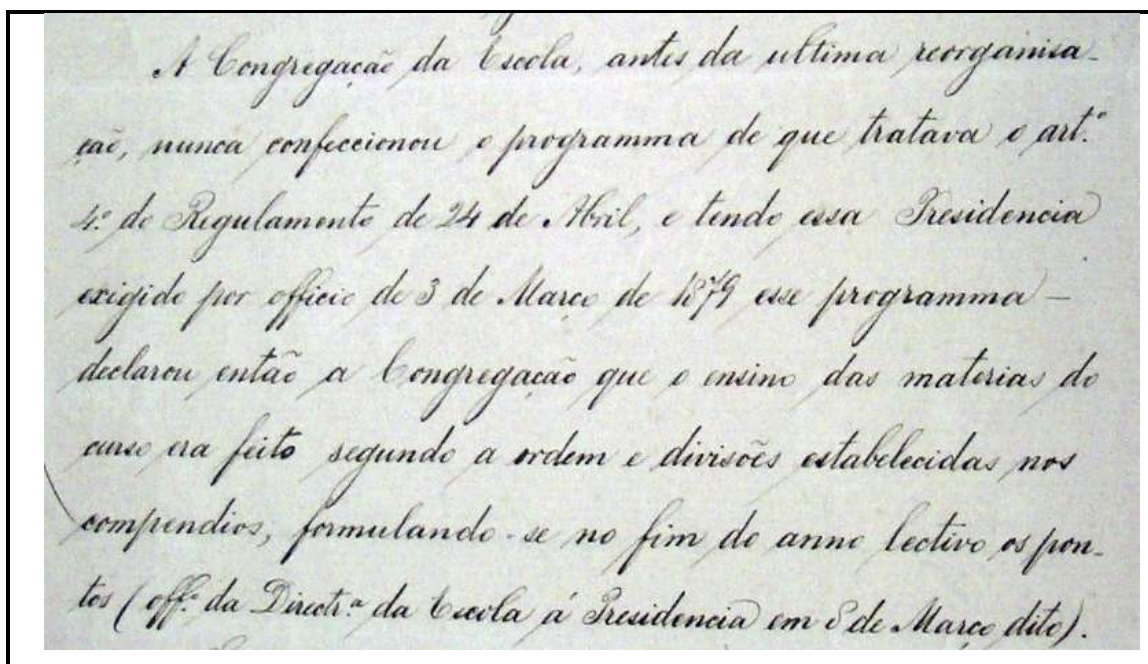 A Congregação da Escola, antes da ultima reorganisa-
ção, nunca confeccionou o programma de que tratava o art.º
4º do Regulamento de 24 de Abril, e tendo essa Presidencia
exigido por officio de 3 de Março de 1879 esse programma –
declarou então a Congregação que o ensino das materias do
curso era feito segundo a ordem e divisões estabelecidas nos
compendios, formulando-se no fim do anno lectivo os pon-
tos (off.º da Directr.ª da Escola á Presidencia em 8 de Março dito).